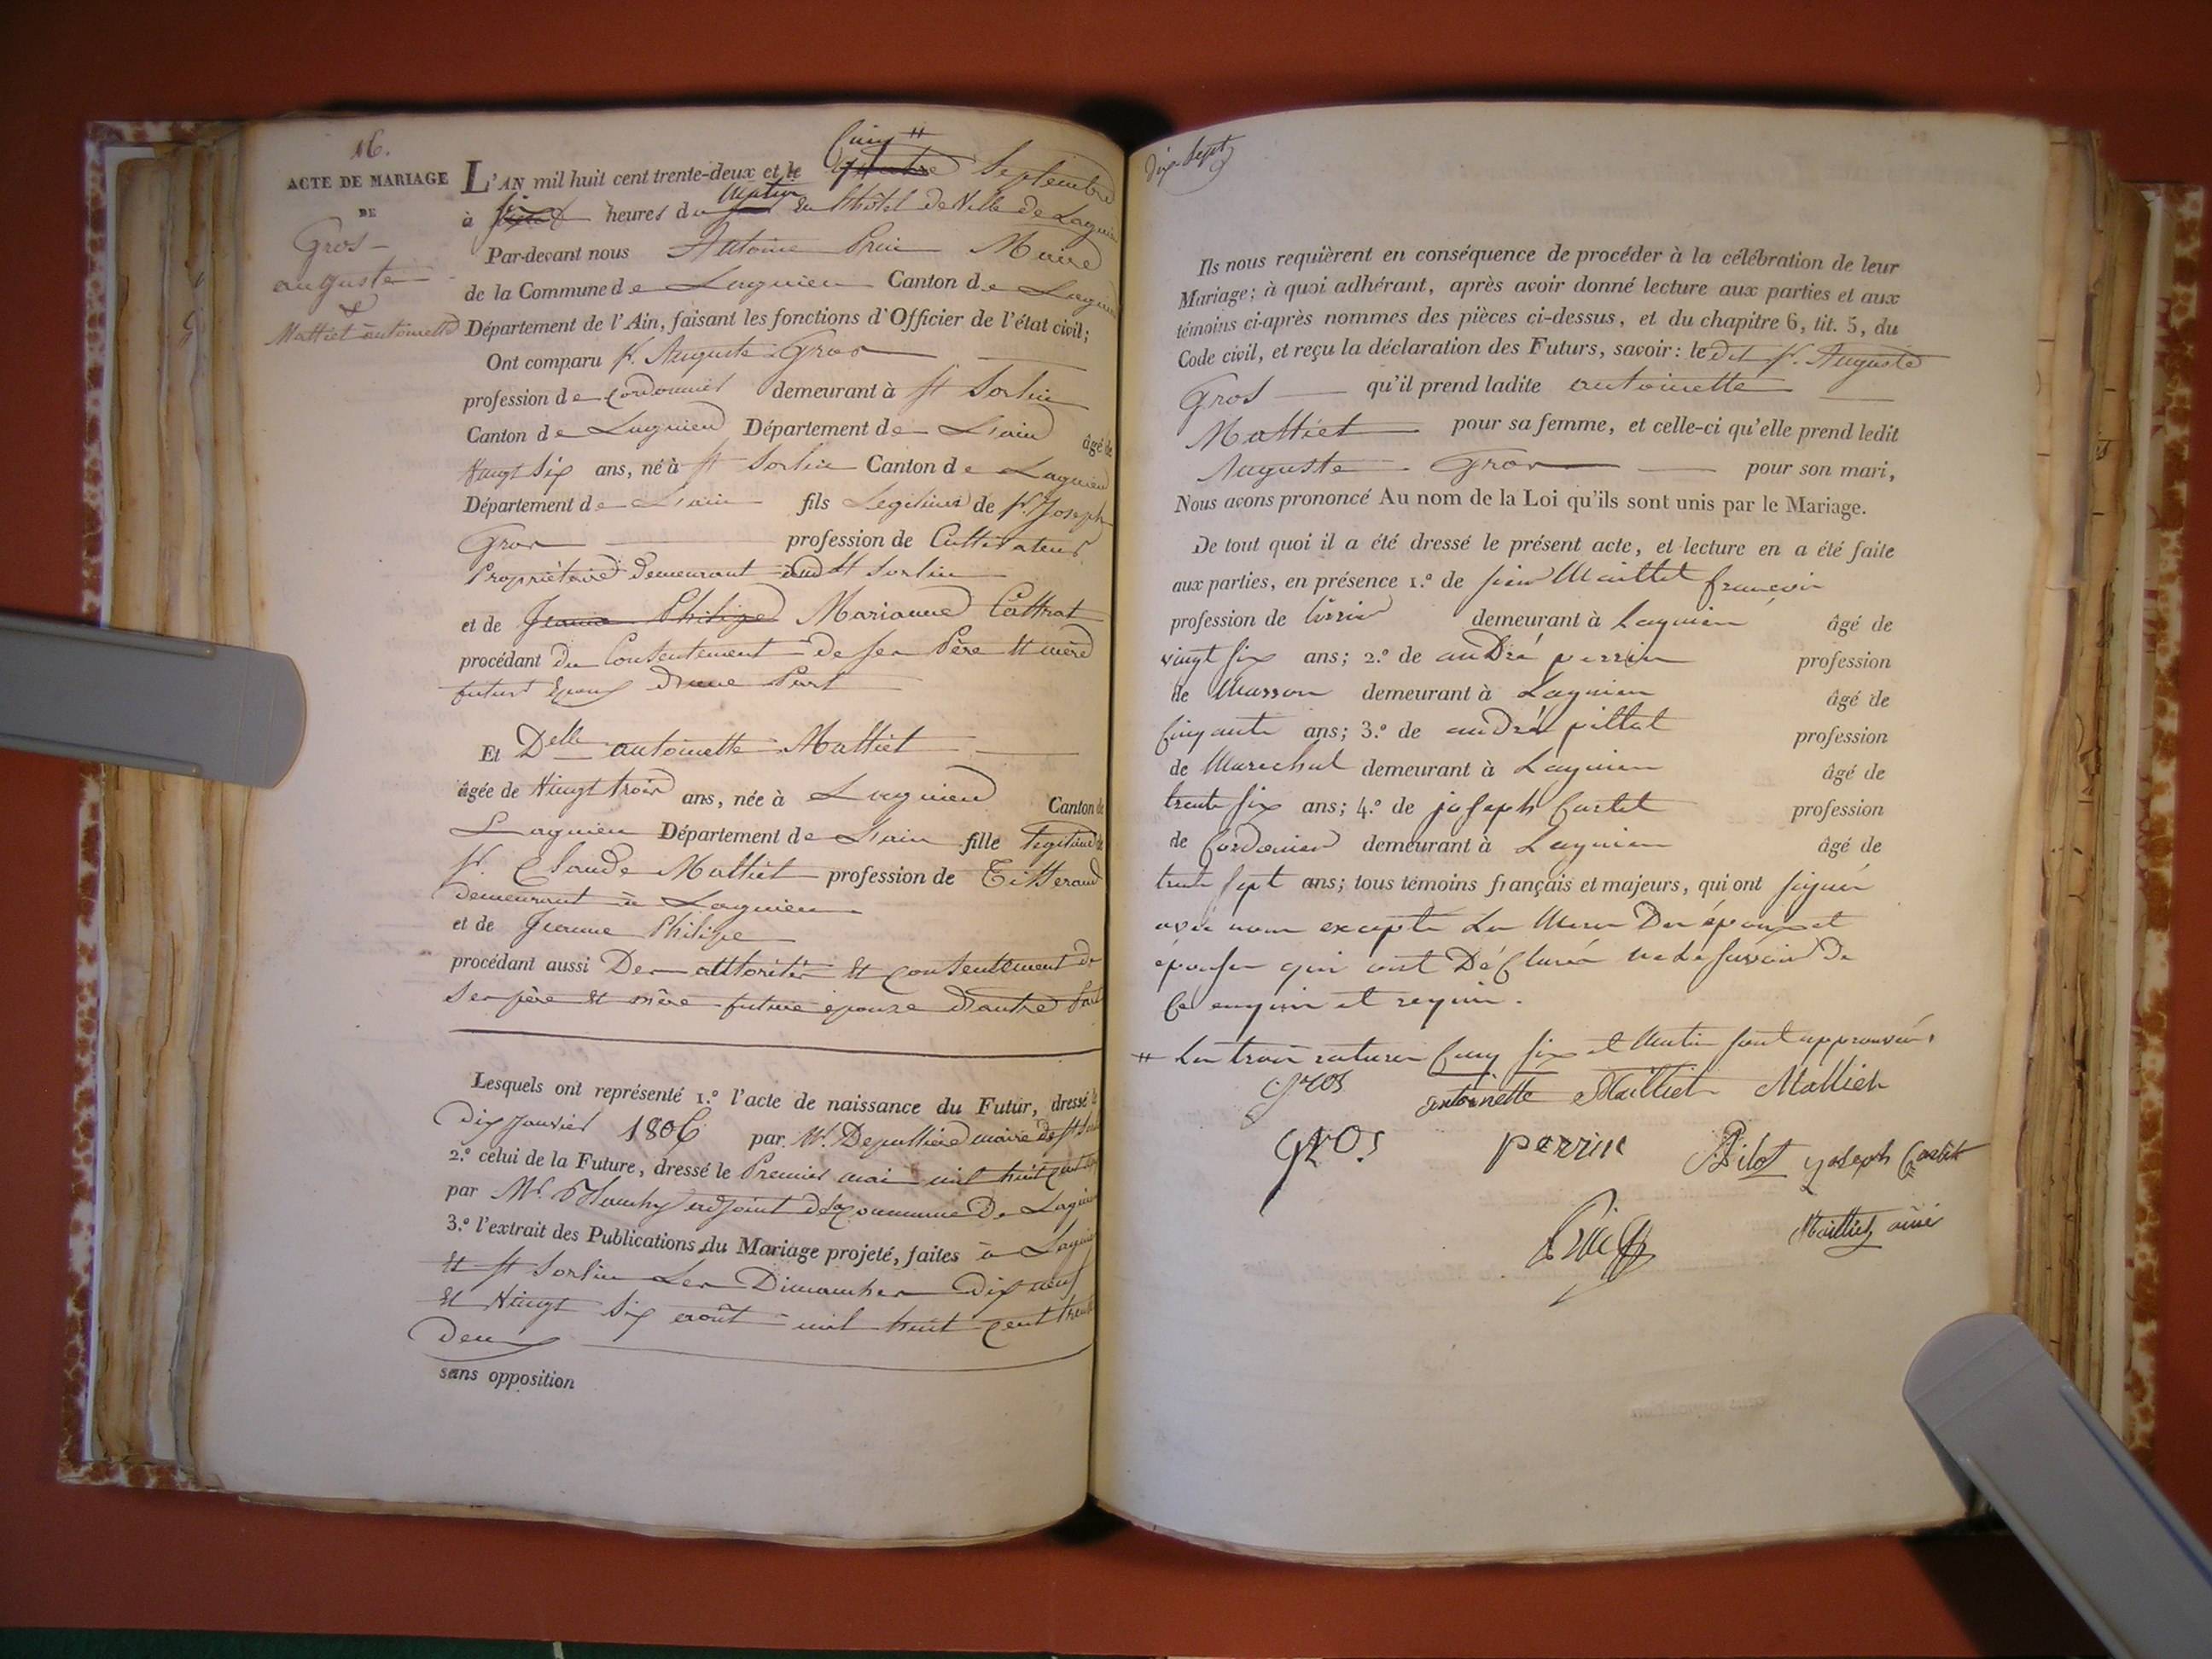 16.
ACTE DE MARIAGE
DE
Gros
auguste
&
Mattiet antoinette
Cinq #
L'AN mil huit cent trente-deux et le quatre Septembre
matin
à six heures du en l'hôtel de Ville de Lagnieu
Par-devant nous Antoine Maire
de la Commune de Lagnieu Canton de Lagnieu
Département de l'Ain, faisant les fonctions d'Officier de l'état civil;
Ont comparu Sr. Auguste Gros
profession de cordonnier demeurant à St Sorlin
Canton de Lagnieu Département de L'ain âgé de
Vingt Six ans, né à St Sorlin Canton de Lagnieu
Département de L'ain fils Legitime de Sr. Joseph
Gros profession de Cultivateur
Propriétaire demeurant aud St Sorlin
et de Jeanne Philipe Marianne Cattrat
procédant du Consentement de ses Père et mère
futur Epoux D'une Part
Et Delle antoinette Mattiet
âgée de Vingt trois ans, née à Lagnieu Canton de
Lagnieu Département de L'ain fille legitime de
Sr. Claude Mattiet profession de Titterand
demeurant à Lagnieu
et de Jeanne Philipe
procédant aussi Des attorités et consentement de
Ses père et mère future epouse D'autre Part
Lesquels ont représenté 1.º l'acte de naissance du Futur, dressé le
Dix Janvier 1806 par Mr. Depullière maire de St Sorlin
2.º celui de la Future, dressé le Premier mai mil huit cent
par Mr. adjoint de la Commune De Lagnieu
3.º l'extrait des Publications du Mariage projeté, faites à Lagnieu
et St Sorlin Les Dimanches Dix neuf
et Vingt Six août mil huit cent trente
Deux
sans opposition
Dix Sept
Ils nous requièrent en conséquence de procéder à la célébration de leur
Mariage; à quoi adhérant, après avoir donné lecture aux parties et aux
témoins ci-après nommés des pièces ci-dessus, et du chapitre 6, tit. 5, du
Code civil, et reçu la déclaration des Futurs, savoir: le dit Sr. Auguste
Gros qu'il prend ladite antoinette
Mattiet pour sa femme, et celle-ci qu'elle prend ledit
Auguste Gros pour son mari,
Nous avons prononcé Au nom de la Loi qu'ils sont unis par le Mariage.
De tout quoi il a été dressé le présent acte, et lecture en a été faite
aux parties, en présence 1.º de sieur Maillet françois
profession de demeurant à Lagnieu âgé de
vingt six ans; 2.º de andré perrin profession
de Masson demeurant à Lagnieu âgé de
cinquante ans; 3.º de andré pillot profession
de Marechal demeurant à Lagnieu âgé de
trente six ans; 4.º de joseph Castet profession
de Cordonier demeurant à Lagnieu âgé de
trente sept ans; tous témoins français et majeurs, qui ont signés
avec nous excepté Les Meres Des époux et
épouse qui ont Déclarés ne le savoir De
Ce enquis et requis.
# Les trois ratures Cinq six et Matin sont approuvées
gros antoinette Mailliet Mattiet
gros perrin Pilot joseph Castet
Mailliet ainé